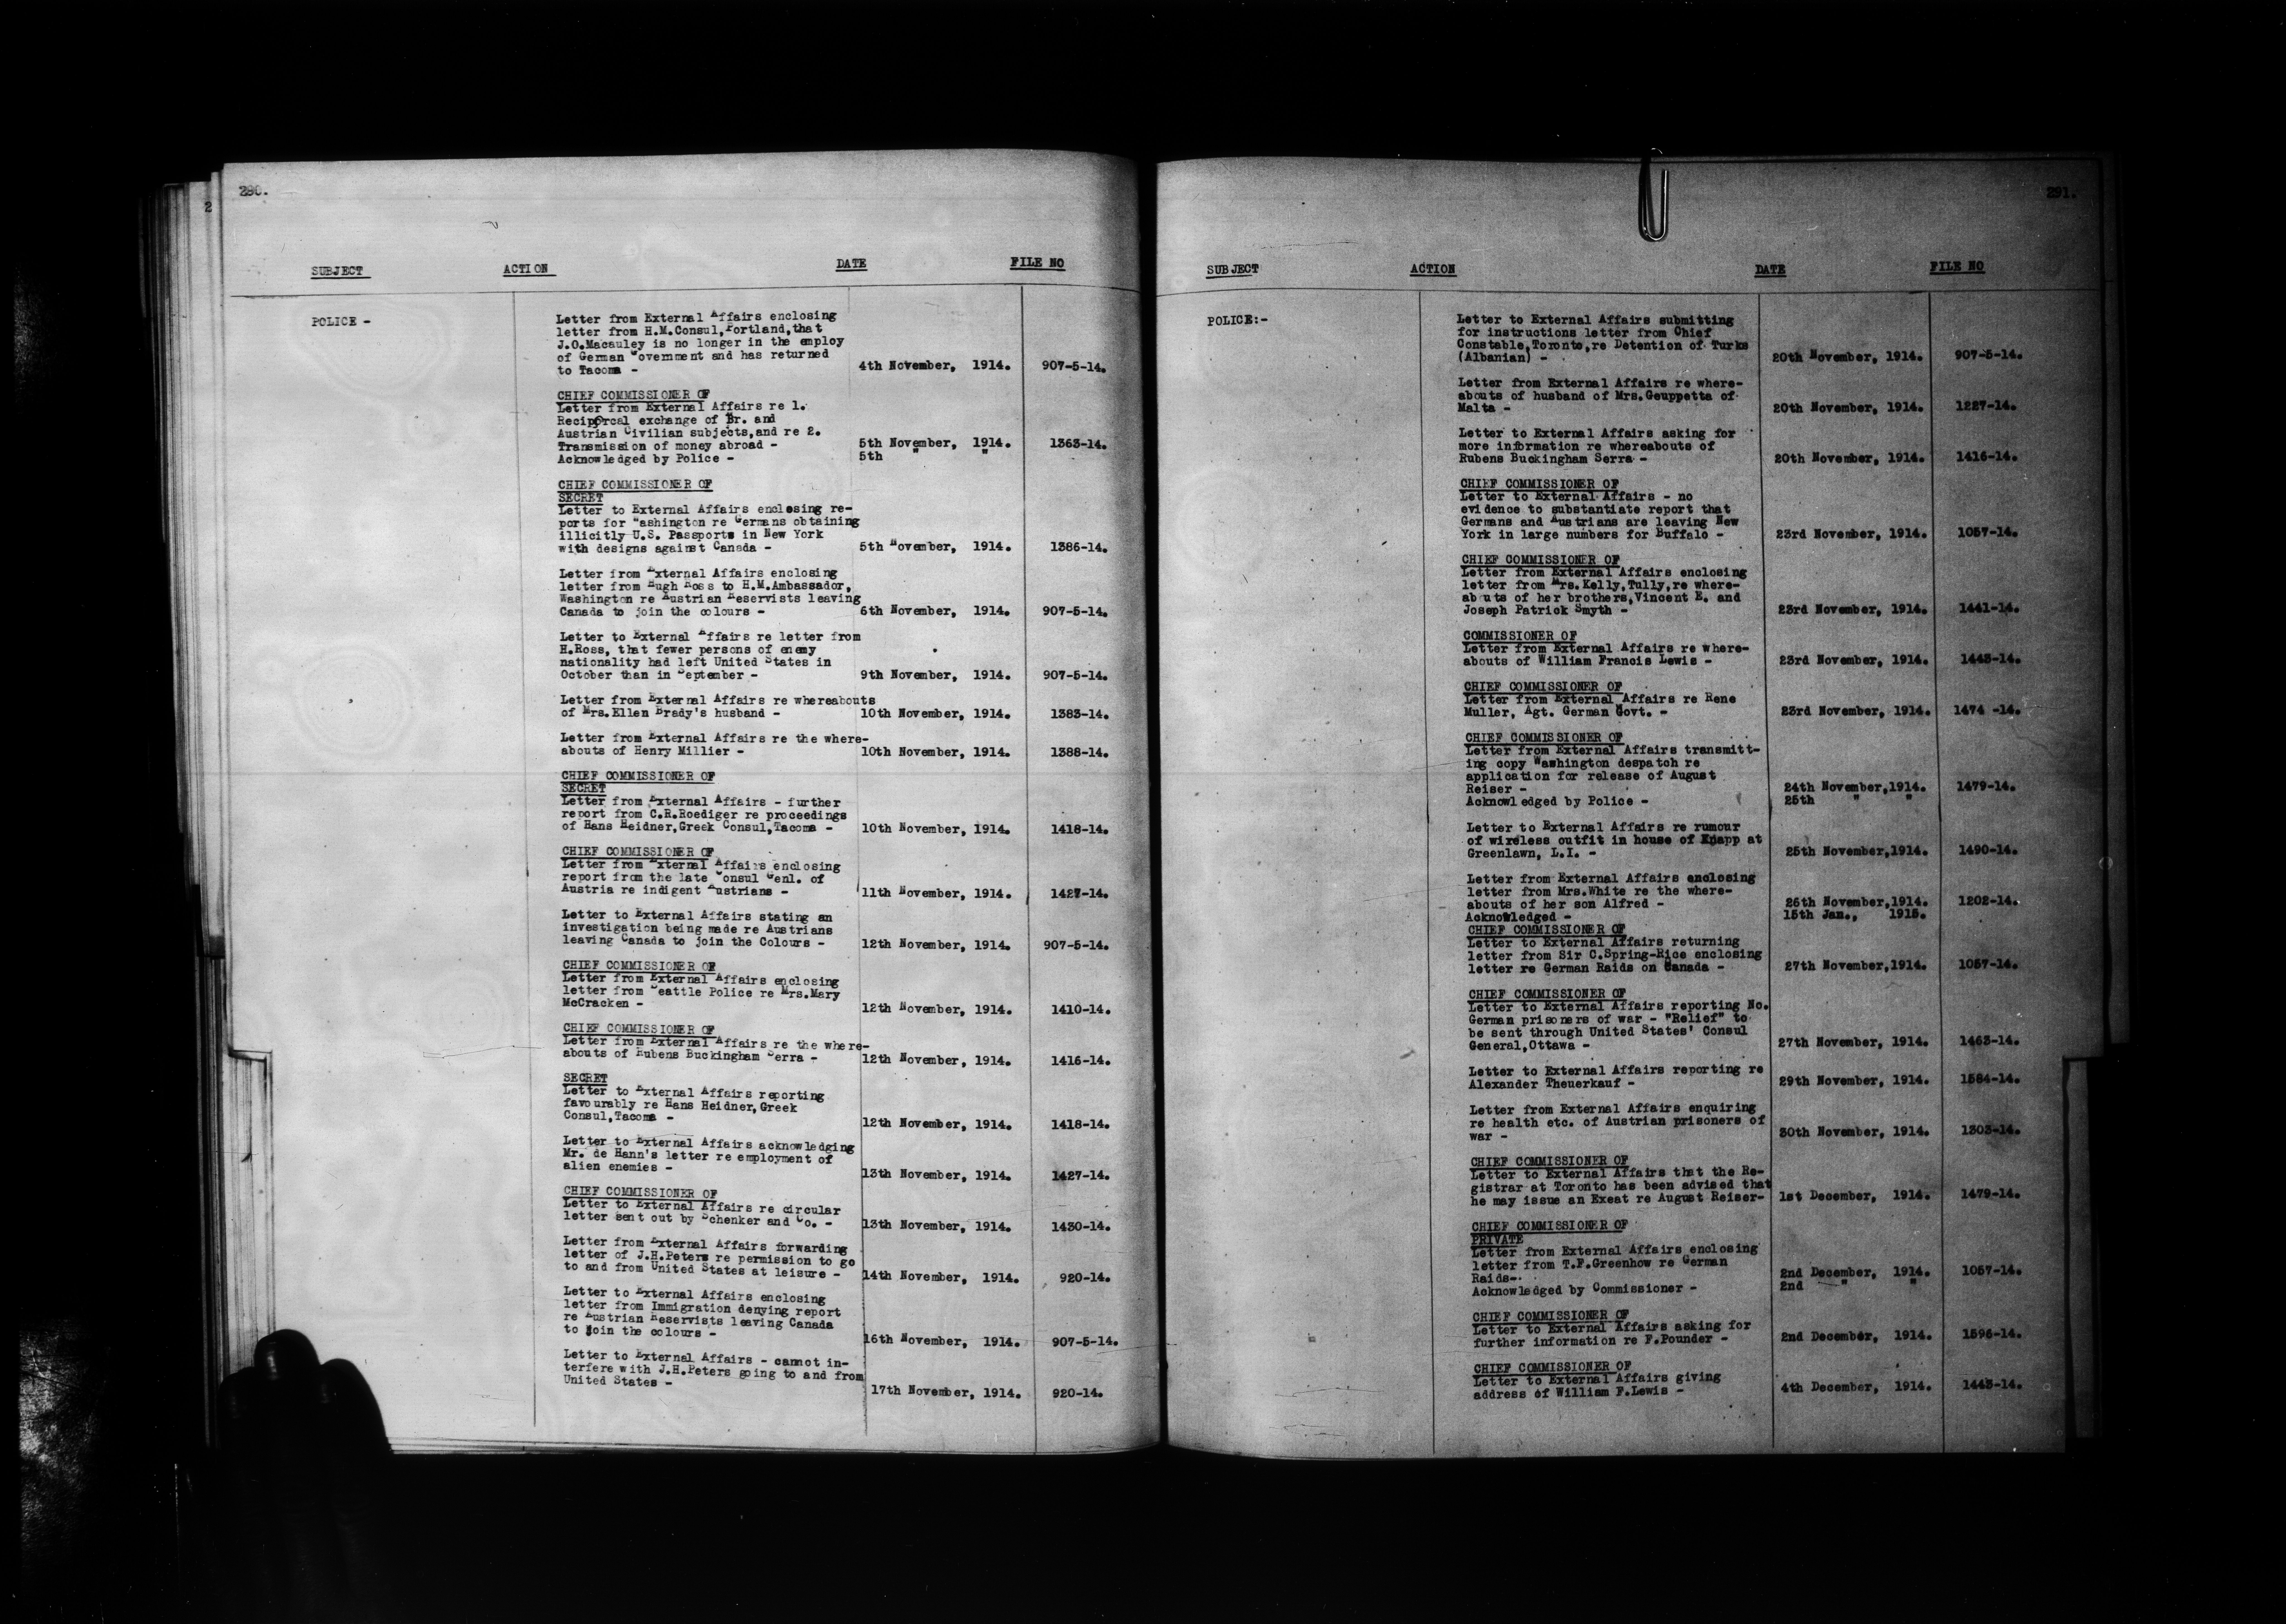 290.
2
SUBJECT ACTION DATE FILE NO
POLICE -
Letter from External Affairs enclosing
letter from H.M.Consul,Portland,that
J.O.Macauley is no longer in the employ
of German Government and has returned
to Tacoma - 4th November, 1914. 907-5-14.
CHIEF COMMISSIONER OF
Letter from External Affairs re 1.
Reciporcal exchange of Br. and
Austrian Civilian subjects,and re 2.
Transmission of money abroad - 5th November, 1914. 1363-14.
Acknowledged by Police - 5th " "
CHIEF COMMISSIONER OF
SECRET
Letter to External Affairs enclosing re-
ports for Washington re Germans obtaining
illicitly U.S. Passports in New York
with designs against Canada - 5th November, 1914. 1386-14.
Letter from External Affairs enclosing
letter from Hugh Ross to H.M.Ambassador,
Washington re Austrian Reservists leaving
Canada to join the colours - 6th November, 1914. 907-5-14.
Letter to External Affairs re letter from
H.Ross, that fewer persons of enemy
nationality had left United States in
October than in September - 9th November, 1914. 907-5-14.
Letter from External Affairs re whereabouts
of Mrs.Ellen Brady's husband - 10th November, 1914. 1383-14.
Letter from External Affairs re the where-
abouts of Henry Millier - 10th November, 1914. 1388-14.
CHIEF COMMISSIONER OF
SECRET
Letter from External Affairs - further
report from C.R.Roediger re proceedings
of Hans Heidner,Greek Consul,Tacoma - 10th November, 1914. 1418-14.
CHIEF COMMISSIONER OF
Letter from External Affairs enclosing
report from the late Consul Genl. of
Austria re indigent Austrians - 11th November, 1914. 1427-14.
Letter to External Affairs stating an
investigation being made re Austrians
leaving Canada to join the Colours - 12th November, 1914. 907-5-14.
CHIEF COMMISSIONER OF
Letter from External Affairs enclosing
letter from Seattle Police re Mrs.Mary
McCracken - 12th November, 1914. 1410-14.
CHIEF COMMISSIONER OF
Letter from External Affairs re the where-
abouts of Rubens Buckingham Serra - 12th November, 1914. 1416-14.
SECRET
Letter to External Affairs reporting
favourably re Hans Heidner, Greek
Consul,Tacoma - 12th November, 1914. 1418-14.
Letter to External Affairs acknowledging
Mr. de Hann's letter re employment of
alien enemies - 13th November, 1914. 1427-14.
CHIEF COMMISSIONER OF
Letter to External Affairs re circular
letter sent out by Schenker and Co. - 13th November, 1914. 1430-14.
Letter from External Affairs forwarding
letter of J.H.Peters re permission to go
to and from United States at leisure - 14th November, 1914. 920-14.
Letter to External Affairs enclosing
letter from Immigration denying report
re Austrian Reservists leaving Canada
to join the colours - 16th November, 1914. 907-5-14.
Letter to External Affairs - cannot in-
terfere with J.H.Peters going to and from
United States - 17th November, 1914. 920-14.
291.
SUBJECT ACTION DATE FILE NO
POLICE:-
Letter to External Affairs submitting
for instructions letter from Chief
Constable,Toronto,re Detention of Turks
(Albanian) - 20th November, 1914. 907-5-14.
Letter from External Affairs re where-
abouts of husband of Mrs.Geuppetta of
Malta - 20th November, 1914. 1227-14.
Letter to External Affairs asking for
more information re whereabouts of
Rubens Buckingham Serra - 20th November, 1914. 1416-14.
CHIEF COMMISSIONER OF
Letter to External Affairs - no
evidence to substantiate report that
Germans and Austrians are leaving New
York in large numbers for Buffalo - 23rd November, 1914. 1057-14.
CHIEF COMMISSIONER OF
Letter from External Affairs enclosing
letter from Mrs.Kelly,Tully,re where-
abouts of her brothers,Vincent E. and
Joseph Patrick Smyth - 23rd November, 1914. 1441-14.
COMMISSIONER OF
Letter from External Affairs re where-
abouts of William Francis Lewis - 23rd November, 1914. 1443-14.
CHIEF COMMISSIONER OF
Letter from External Affairs re Rene
Muller, Agt. German Govt. - 23rd November, 1914. 1474 -14.
CHIEF COMMISSIONER OF
Letter from External Affairs transmitt-
ing copy Washington despatch re
application for release of August
Reiser - 24th November,1914. 1479-14.
Acknowledged by Police - 25th " "
Letter to External Affairs re rumour
of wireless outfit in house of Knapp at
Greenlawn, L.I. - 25th November,1914. 1490-14.
Letter from External Affairs enclosing
letter from Mrs.White re the where-
abouts of her son Alfred - 26th November,1914. 1202-14.
Acknowledged - 15th Jan., 1915.
CHIEF COMMISSIONER OF
Letter to External Affairs returning
letter from Sir C.Spring-Rice enclosing
letter re German Raids on Canada - 27th November,1914. 1057-14.
CHIEF COMMISSIONER OF
Letter to External Affairs reporting No.
German prisoners of war - "Relief" to
be sent through United States' Consul
General,Ottawa - 27th November, 1914. 1463-14.
Letter to External Affairs reporting re
Alexander Theuerkauf - 29th November, 1914. 1584-14.
Letter from External Affairs enquiring
re health etc. of Austrian prisoners of
war - 30th November, 1914. 1303-14.
CHIEF COMMISSIONER OF
Letter to External Affairs that the Re-
gistrar at Toronto has been advised that
he may issue an Exeat re August Reiser- 1st December, 1914. 1479-14.
CHIEF COMMISSIONER OF
PRIVATE
Letter from External Affairs enclosing
letter from T.F.Greenhow re German
Raids- 2nd December, 1914. 1057-14.
Acknowledged by Commissioner - 2nd " "
CHIEF COMMISSIONER OF
Letter to External Affairs asking for
further information re F.Pounder - 2nd December, 1914. 1596-14.
CHIEF COMMISSIONER OF
Letter to External Affairs giving
address of William F.Lewis - 4th December, 1914. 1443-14.